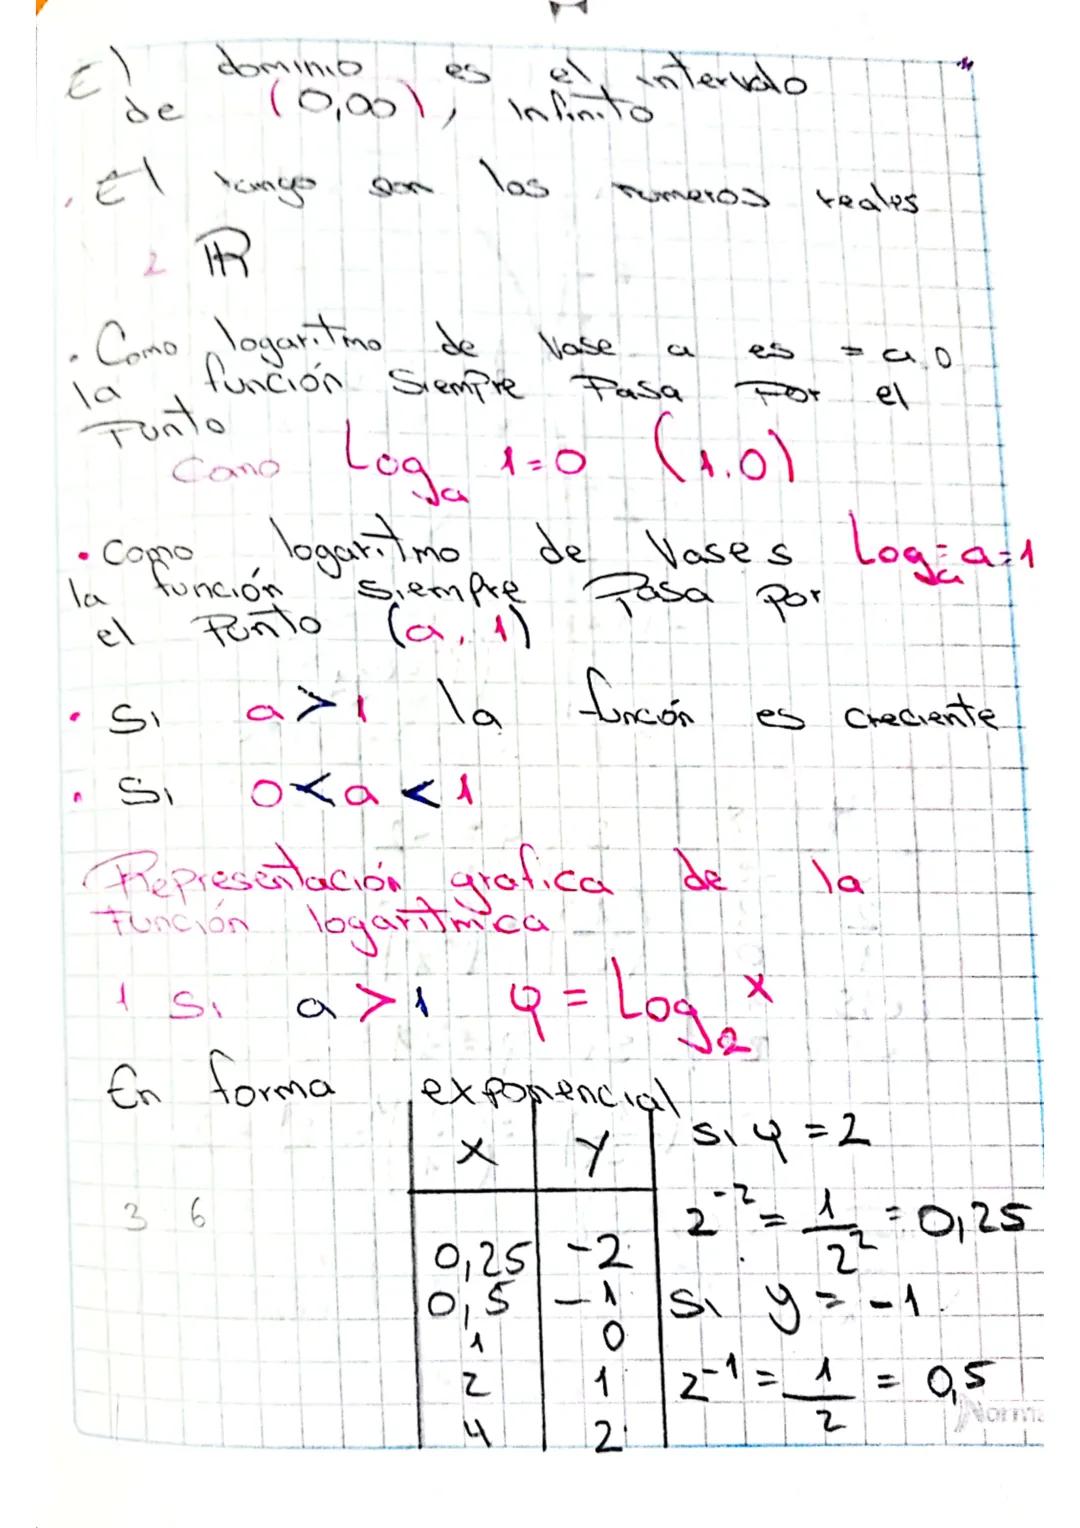 El dominio es el intervalo
de (0,∞), Infinito
. El rango son los numeros reales
2 ℝ
. Como logaritmo de Vase a es = a 0
la función Siempre Pasa Por el
Punto
Como Log_a 1=0 (1.0)
. Como logaritmo de Vases Log_a = a=1
la función siempre Pasa por
el Punto (a, 1)
. Si a>1 la función es creciente
. Si 0<a<1
Representación grafica de la
Función logaritmica
1 Si a>1 y = Log_2 x
En forma exponencial
x | y
si y = 2
3 6
2^-2 = 1/2^2 = 0,25
0,25 | -2
0,5 | -1
si y = -1
1 | 0
2 | 1
2^-1 = 1/2 = 0,5
Norma
4 | 2